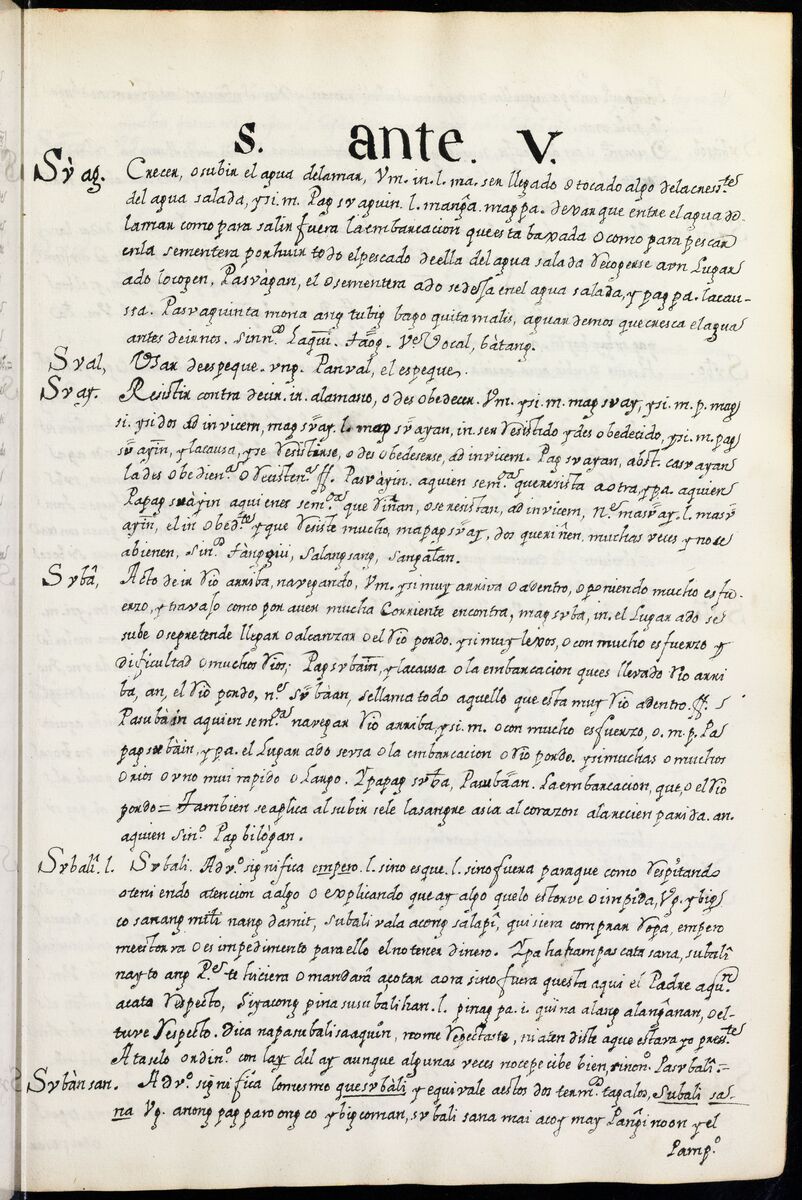 S. ante. V.
Svag. Crecer, o subir el agua delamar, Vm. in. l. ma. ser llegado o tocado algo dela cress.te
del agua salada, ysi. m. Pag svaguin. l. manḡa. mag̃pa. dexar que entre el agua de
lamar como para salir fuera la embarcacion que esta baxada o como para pescar
enla sementera por huir todo el pescado de ella del agua salada Recogerse a vn Lugar
ado lo cogen, Pasvàgan, el o sementera ado se dexa en el agua salada, y pag pa. lacau-
ssa. Pasvaquinta mona ang tubig bago quita malis, aguardemos que cresca el agua
antes de irnos. Sinn.o Laqui. Taog. Ve Vocal, bàtang.
Sval, Vsar de espeque. vng. Panval, el espeque.
Svay. Resistir contra deir. in. alamano, o des obedecer. Vm. ysi. m. mag svay, ysi. m. p. mag
si. ysi dos ad invicem, mag svay. l. mag svayan, in. ser Resistido y des obedecido, ysi. m. pag
svayin, y lacausa, y se Resistirse, o des obedeserse, ad invicem. Pag svayan, abst. casvayan
la des obedien.a o Resisten.a ff. Pasvàyin. aquien sem.a que resista a otra, y pa. aquien
Papag svàyin aquienes sem.a que riñan, o se resistan, ad invicem, n.e masvay. l. masv
ayin, el in obed.te y que Resiste mucho, mapagsvay, dos que riñen muchas veces y no se
abienen, Sin.o Tànggui, Salangsang, Sangàtan.
Svbâ, Acto de ir Rio arriba, navegando, Vm. ysi muy arriva o adentro, o poniendo mucho esfu-
erzo, y travajo como por aver mucha Corriente encontra, magsvba, in. el Lugar ado se
sube o se pretende llegar o alcanzar o el Rio pordo. ysi muy lexos, o con mucho esfuerzo y
dificultad o muchos Rios; Pagsvbaîn, y lacausa o la embarcacion que es llevado Rio arri
ba, an, el Rio pordo, n.e Svbàan, se llama todo aquello que esta muy Rio adentro. ff.
Pasubàin aquien sem.a navegar Rio arriba, ysi. m. o con mucho esfuerzo, o. m. p. Pa
pagsvbàin, y pa. el Lugar ado sería o la embarcacion o Rio pordo. ysi muchas o muchos
o rios o vno mui rapido o Largo. Ypapag svba, Pasubàan. La embarcacion, que, o el Rio
pordo = Tambien se aplica al subir sele la sangre asia al corazon ala recien parida. an.
aquien Sin.o Pag bilògan.
Svbalî. l. Svbali. Adv.o significa empero. l. sino es que. l. sino fuera para que como Respetando
o teniendo atencion a algo o explicando que ay algo que lo estorve o impida, Vg. ybig
co sanang milî nang damit, subali vala acong salapî, quisiera comprar Ropa, empero
me estorva o es impedimento para ello el no tener dinero. Ypa hahampas cata sana, subalî
nayto ang P.e te hiciera o mandarâ açotar aora sino fuera questa aqui el Padre aqu.n
acato Respecto, Siya cong pina susubalihan. l. pinag pa. i. qui na alang alanḡanan, o el
tuve Respecto. Dica napasubali sa aquin, no me Respectaste, ni atendiste a que estava yo pres.te
A taselo ordin.o con lay del ay aunque algunas veces no cepecibe bien, sinon.o Pasvbalî.-
Svbànsan. Adv.o significa lo mesmo que svbàli y equivale a estos dos term.s tagalos, Subali sa-
na Vg. anong pag paroong co ybig co man, svbali sana mai acoy may Panḡinoon y el
Pamg.o